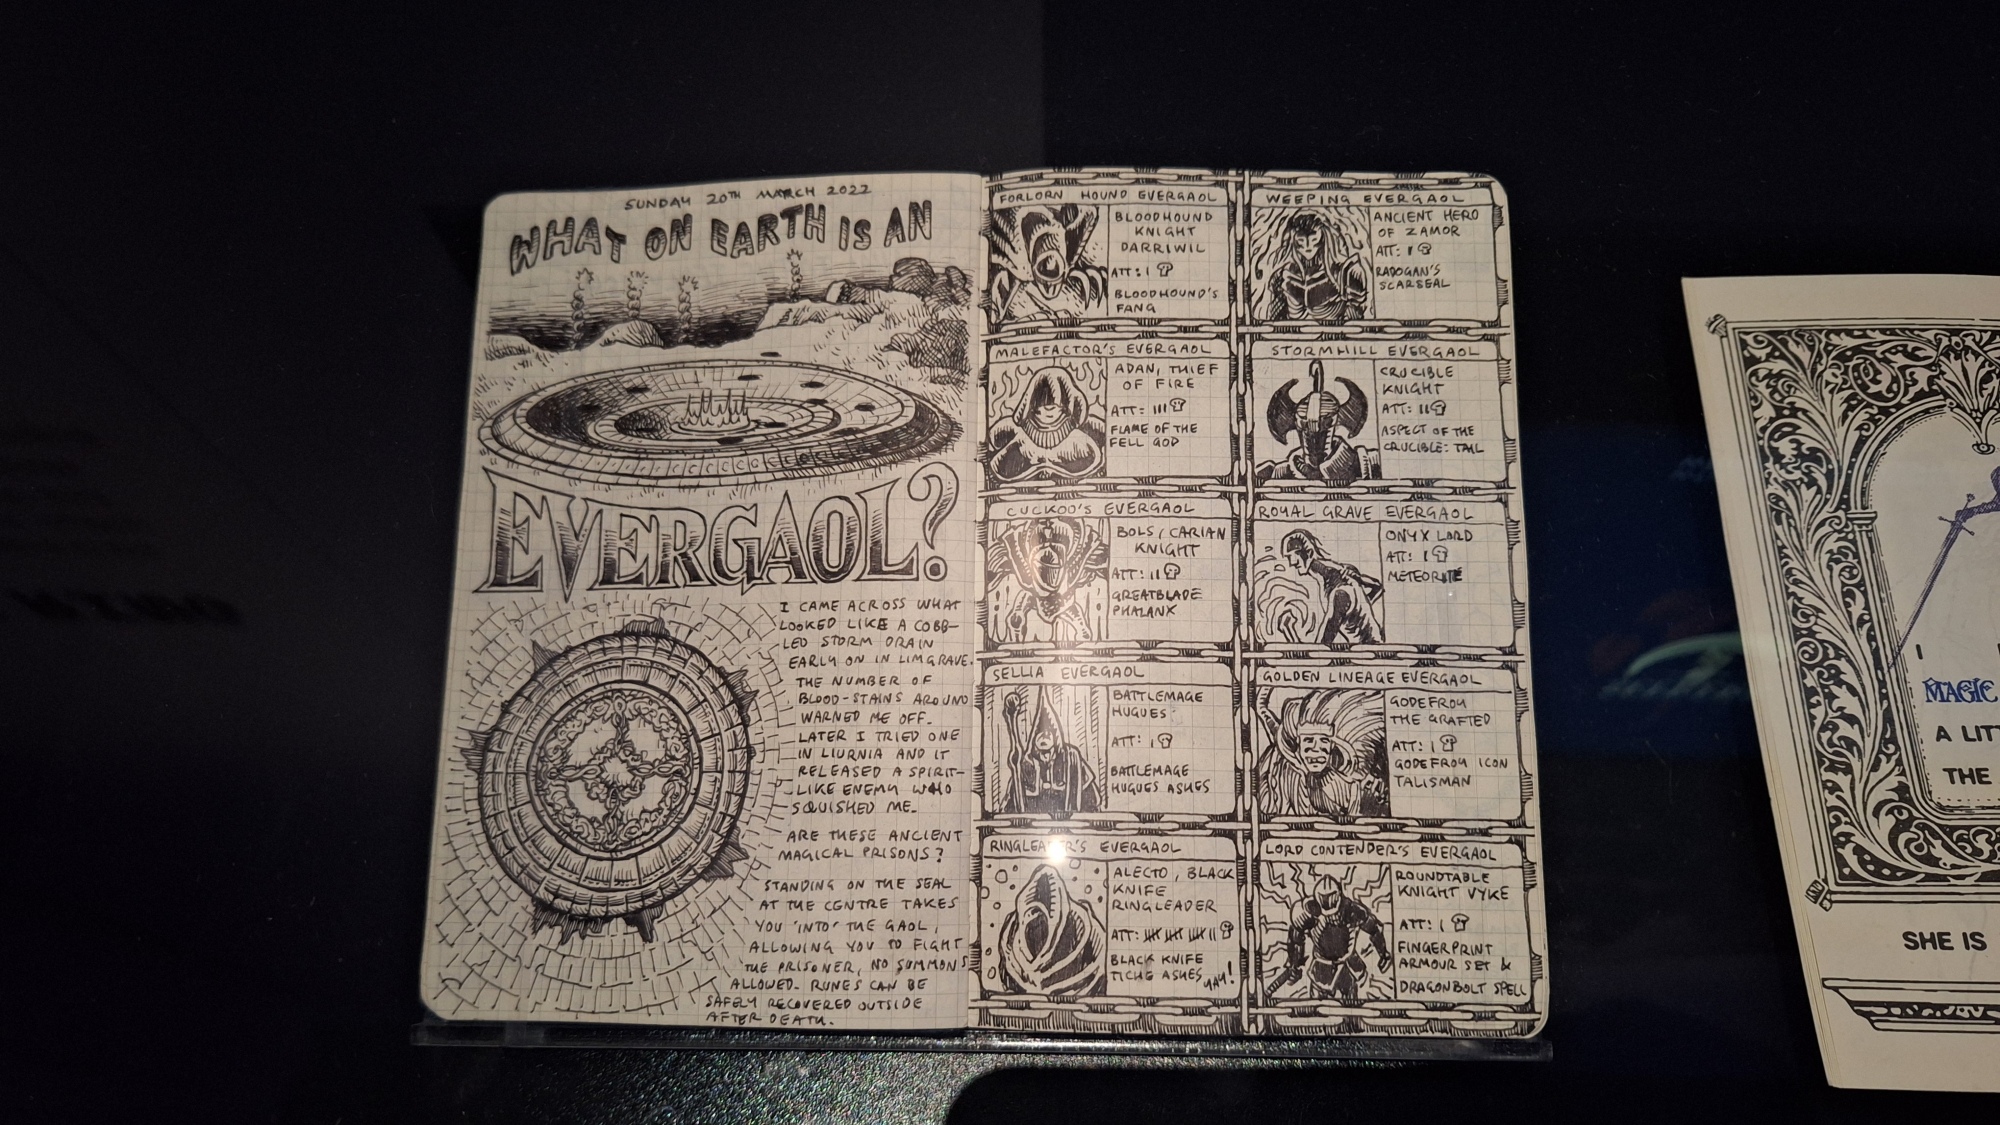 SUNDAY 20TH MARCH 2022
WHAT ON EARTH IS AN
EVERGAOL?
I CAME ACROSS WHAT
LOOKED LIKE A COBB-
LED STORM DRAIN
EARLY ON IN LIMGRAVE.
THE NUMBER OF
BLOOD-STAINS AROUND
WARNED ME OFF.
LATER I TRIED ONE
IN LIURNIA AND IT
RELEASED A SPIRIT-
LIKE ENEMY WHO
SQUISHED ME.
ARE THESE ANCIENT
MAGICAL PRISONS?
STANDING ON THE SEAL
AT THE CENTRE TAKES
YOU 'INTO' THE GAOL,
ALLOWING YOU TO FIGHT
THE PRISONER, NO SUMMONS
ALLOWED. RUNES CAN BE
SAFELY RECOVERED OUTSIDE
AFTER DEATH.
FORLORN HOUND EVERGAOL
BLOODHOUND
KNIGHT
DARRIWIL
ATT: I
BLOODHOUND'S
FANG
WEEPING EVERGAOL
ANCIENT HERO
OF ZAMOR
ATT: I
RADOGAN'S
SCARSEAL
MALEFACTOR'S EVERGAOL
ADAN, THIEF
OF FIRE
ATT: III
FLAME OF THE
FELL GOD
STORMHILL EVERGAOL
CRUCIBLE
KNIGHT
ATT: II
ASPECT OF THE
CRUCIBLE: TAIL
CUCKOO'S EVERGAOL
BOLS, CARIAN
KNIGHT
ATT: II
GREATBLADE
PHALANX
ROYAL GRAVE EVERGAOL
ONYX LORD
ATT: I
METEORITE
SELLIA EVERGAOL
BATTLEMAGE
HUGUES
ATT: I
BATTLEMAGE
HUGUES ASHES
GOLDEN LINEAGE EVERGAOL
GODEFROY
THE GRAFTED
ATT: I
GODEFROY ICON
TALISMAN
RINGLEADER'S EVERGAOL
ALECTO, BLACK
KNIFE
RINGLEADER
ATT: IIII IIII IIII II
BLACK KNIFE
TICHE ASHES YAY!
LORD CONTENDER'S EVERGAOL
ROUNDTABLE
KNIGHT VYKE
ATT: I
FINGERPRINT
ARMOUR SET &
DRAGONBOLT SPELL
I
MAGIC
A
THE
SHE IS